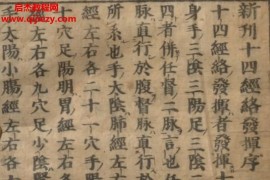 新刊十四經絡發揮序
十四經絡發揮者發揮十
身手三陰三陽足三陰
四者併任督二脉言也任
脉直行於腹督脉直行於
所系也手太陰肺經左右
經左右各二十一穴手陽
十穴足陽明胃經左右各
經左右各九穴足少陰
手太陽小腸經左右各十